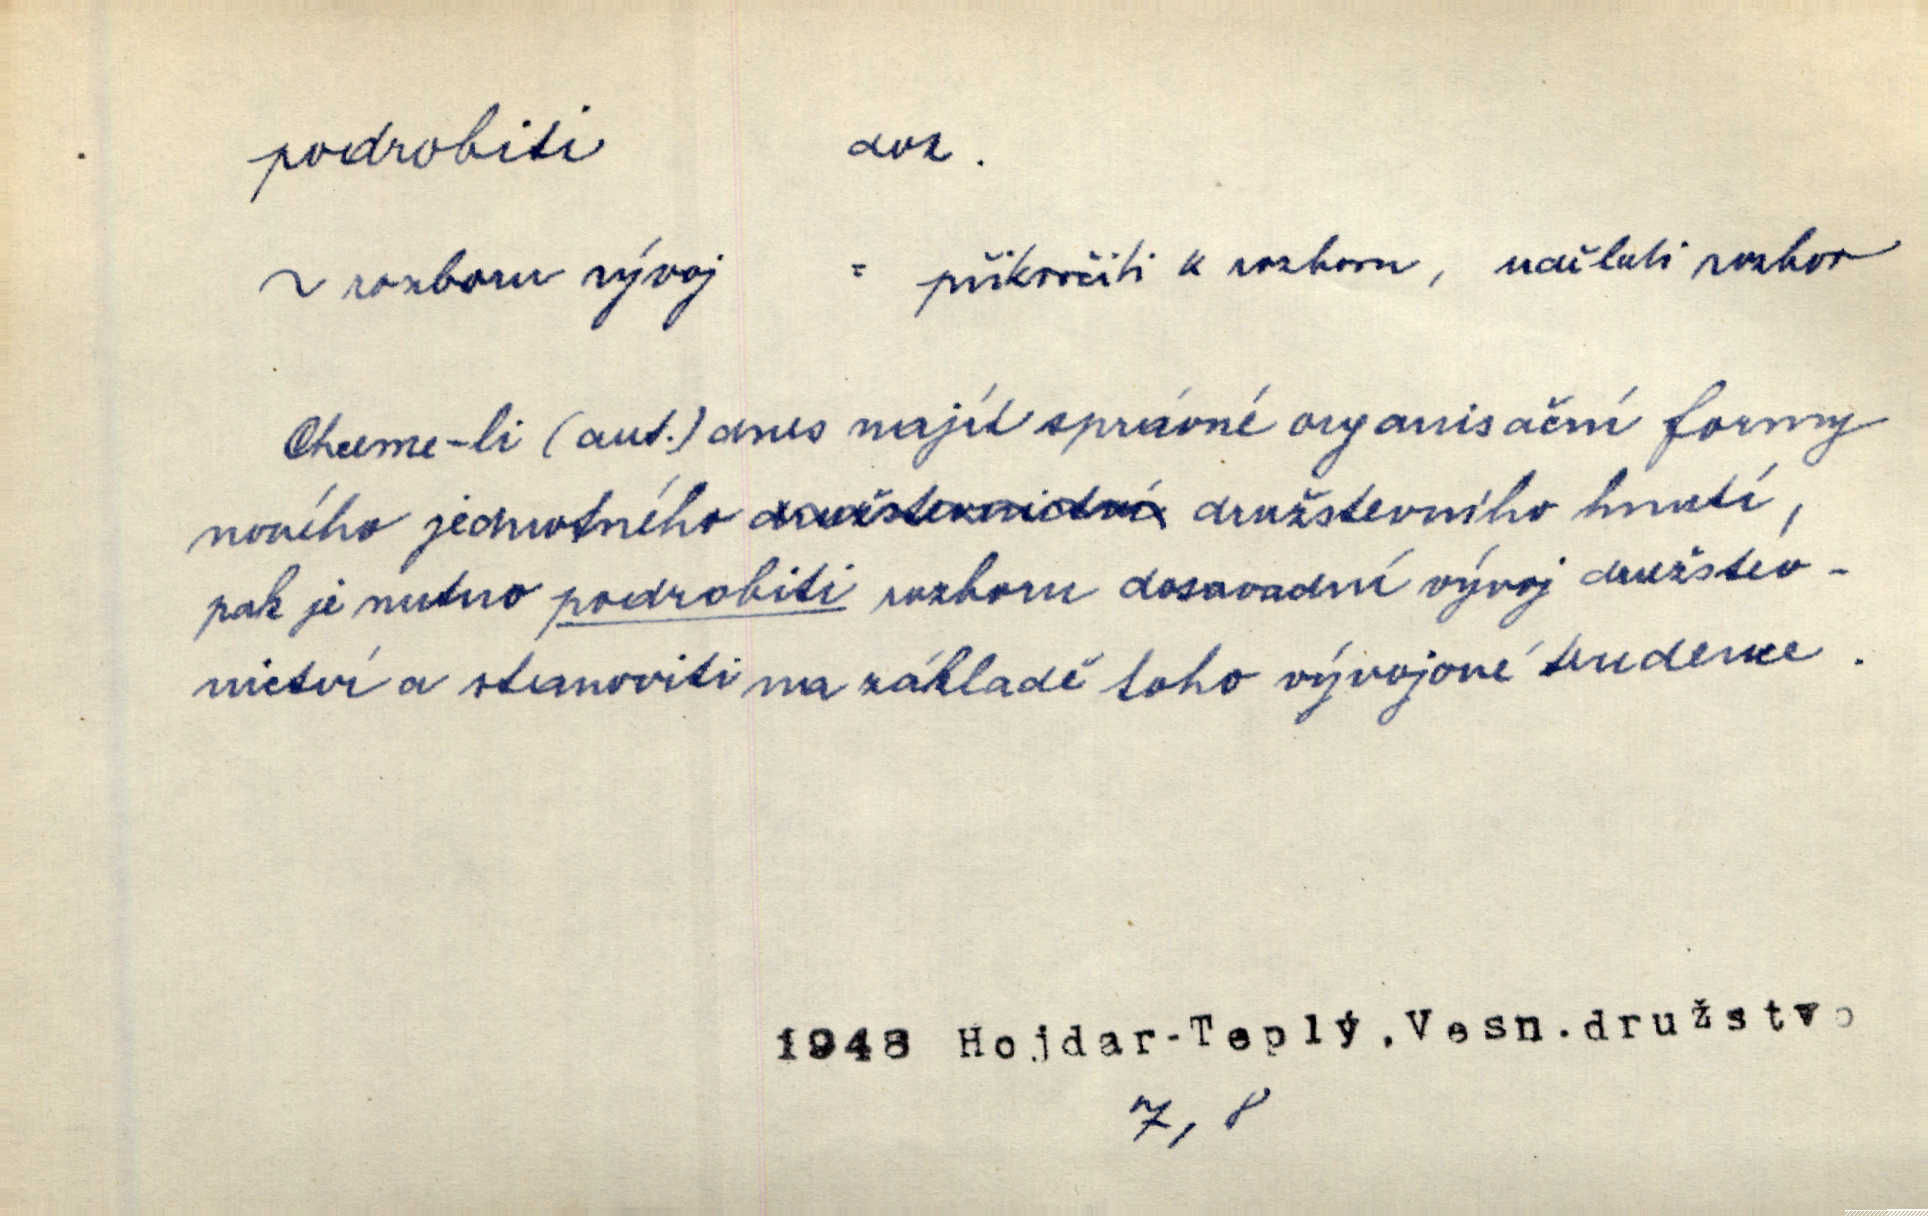 podrobiti dok.
~ rozboru vývoj = přikročiti k rozboru, udělati rozbor
Chceme-li (aut.) dnes najít správné organisační formy
nového jednotného družstevního hnutí,
pak je nutno podrobiti rozboru dosavadní vývoj družstev-
nictví a stanoviti na základě toho vývojové tendence.
1948 Hojdar-Teplý, Vesn. družstvo
7, 8